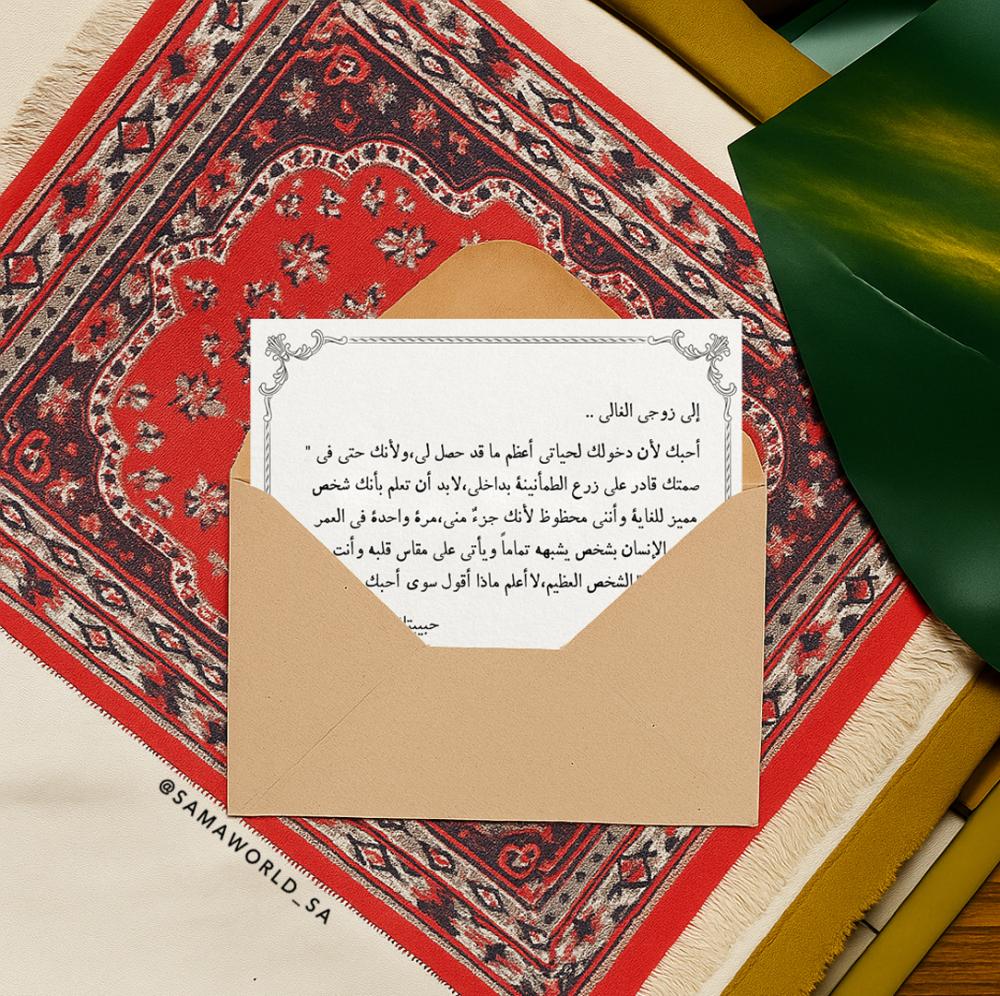 إلى زوجى الغالى ..
أحبك لأن دخولك لحياتى أعظم ما قد حصل لى،ولأنك حتى فى "
صمتك قادر على زرع الطمأنينة بداخلى،لابد أن تعلم بأنك شخص
مميز للغاية وأننى محظوظ لأنك جزءٌ منى،مرة واحدة فى العمر
الإنسان بشخص يشبهه تماماً ويأتى على مقاس قلبه وأنت
"الشخص العظيم،لا أعلم ماذا أقول سوى أحبك
@SAMAWORLD_SA